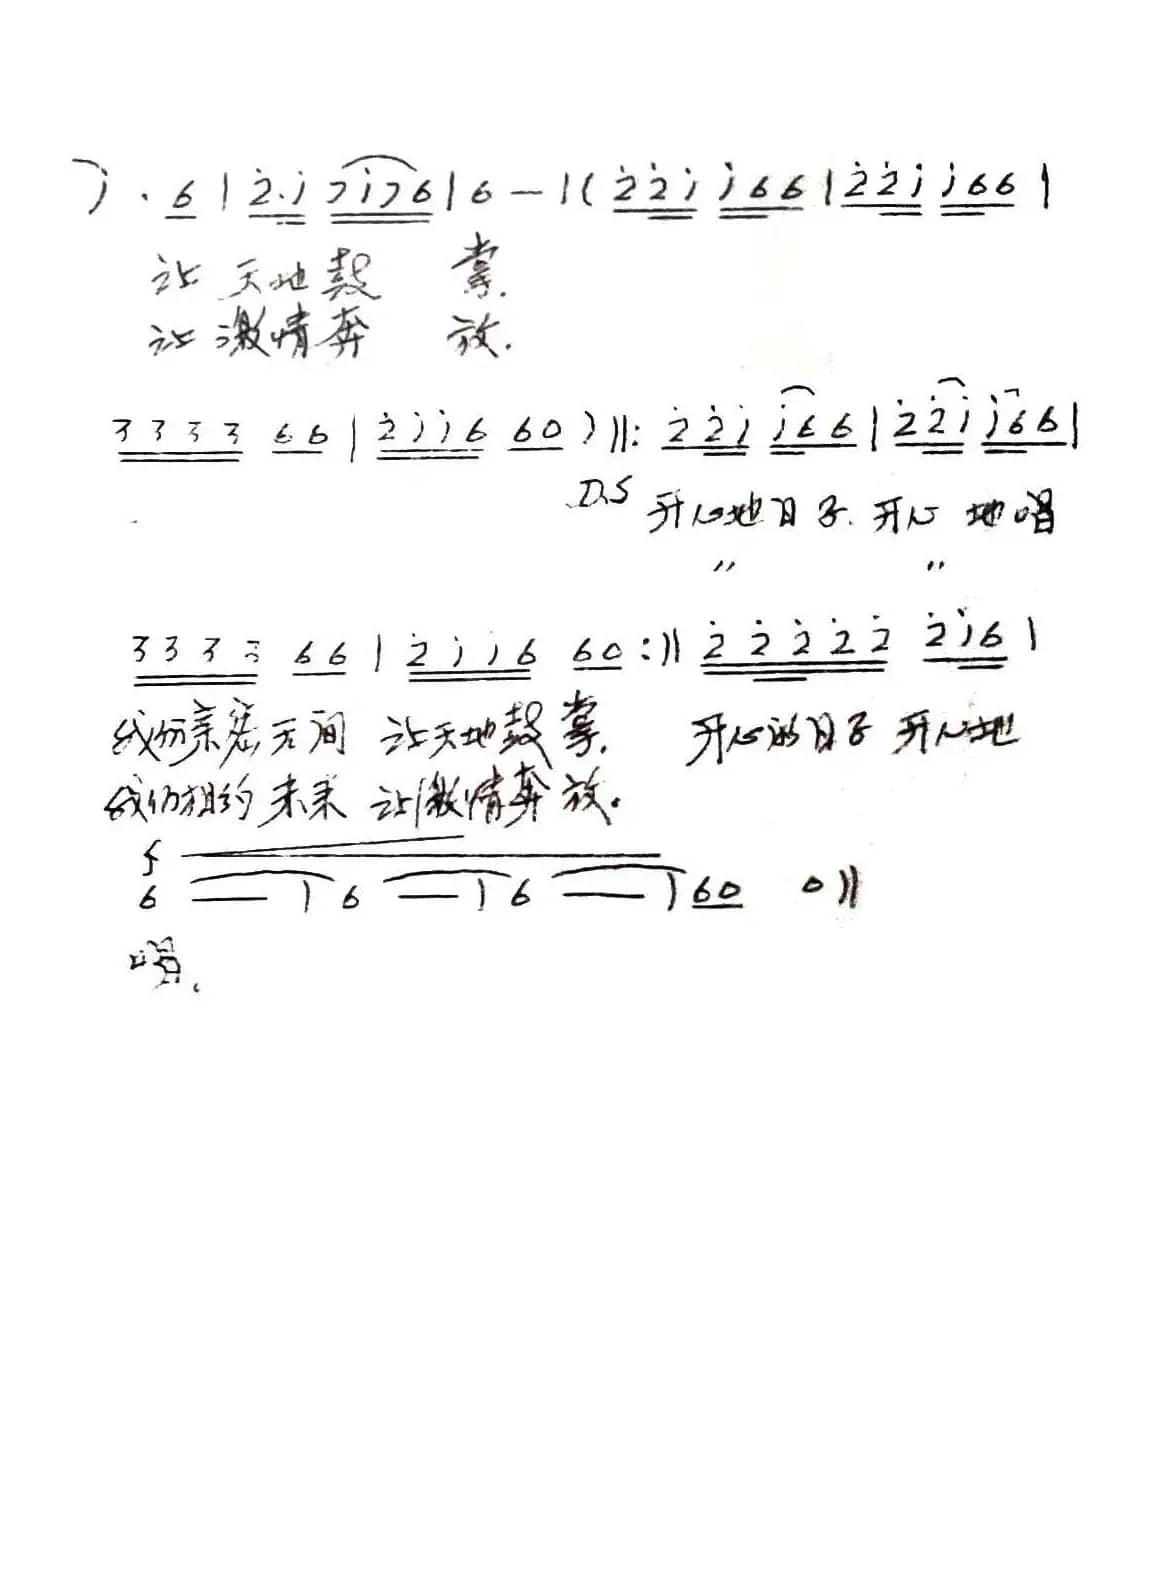 i · 6 | 2̇ · i 7 i 7 6 | 6 — | ( 2̇ 2̇ i i 6 6 | 2̇ 2̇ i i 6 6 |
让 天地鼓 掌.
让 激情奔 放.
3 3 3 3 6 6 | 2̇ i i 6 6 0 ) ‖: 2̇ 2̇ i i 6 6 | 2̇ 2̇ i i 6 6 |
D.S 开心地日子. 开心 地唱
〃 〃
3 3 3 3 6 6 | 2̇ i i 6 6 0 :‖ 2̇ 2̇ 2̇ 2̇ 2̇ 2̇ i 6 |
我们亲密无间 让天地鼓掌. 开心的日子 开心地
我们相约未来 让激情奔放.
f
6 — | 6 — | 6 — | 6 0 0 ‖
唱.